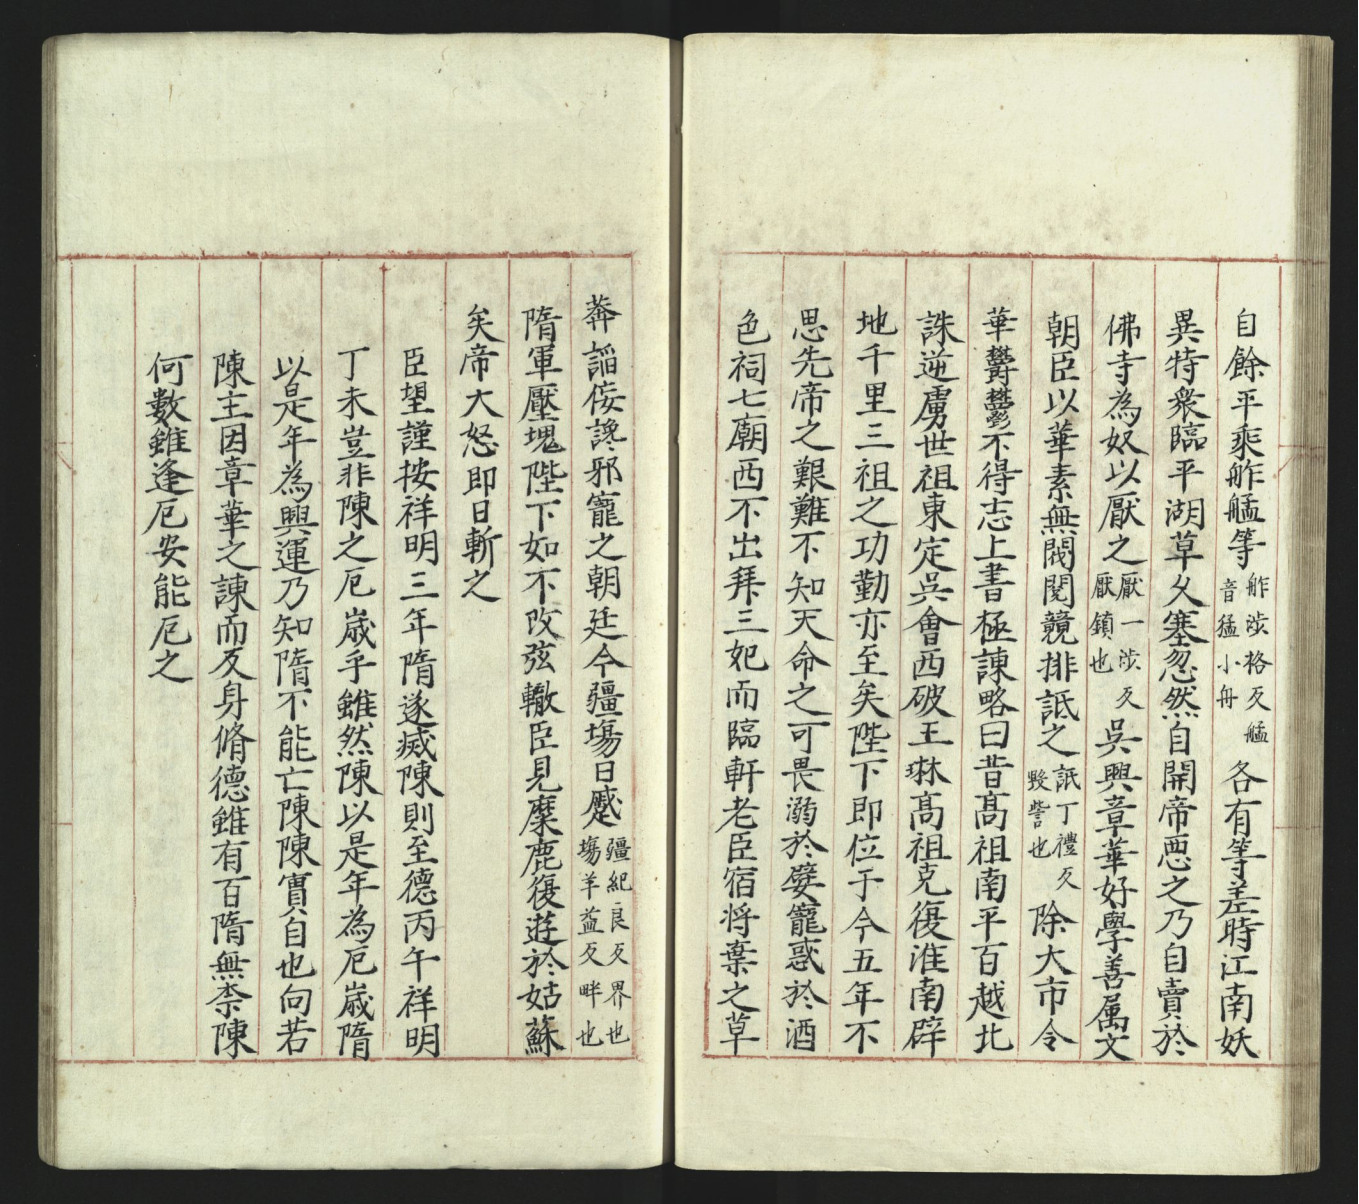 自餘平乘舴艋等舴涉格反艋音猛小舟各有等差時江南妖
異特衆臨平湖草久塞忽然自開帝惡之乃自賣於
佛寺為奴以厭之厭一涉反厭鎮也吳興章華好學善属文
朝臣以華素無閥閱競排詆之詆丁禮反毀訾也除大市令
華欝欝不得志上書極諫略曰昔髙祖南平百越北
誅逆虜世祖東定吳會西破王琳髙祖克復淮南辟
地千里三祖之功勤亦至矣陛下即位于今五年不
思先帝之艱難不知天命之可畏溺於嬖寵惑於酒
色祠七廟而不出拜三妃而臨軒老臣宿将棄之草
莽謟佞讒邪寵之朝廷今疆埸日蹙疆紀良反界也埸羊益反畔也
隋軍壓塊陛下如不改弦轍臣見麋鹿復遊於姑蘇
矣帝大怒即日斬之
臣望謹按祥明三年隋遂滅陳則至德丙午祥明
丁未豈非陳之厄嵗乎雖然陳以是年為厄嵗隋
以是年為興運乃知隋不能亡陳陳實自也向若
陳主因章華之諫而反身脩德雖有百隋無柰陳
何數雖逢厄安能厄之